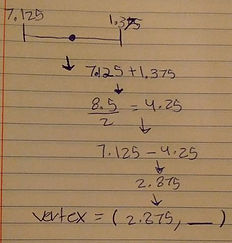 7.125 1.375
7.125 + 1.375
8.5/2 = 4.25
7.125 - 4.25
2.875
vertex = (2.875, __)